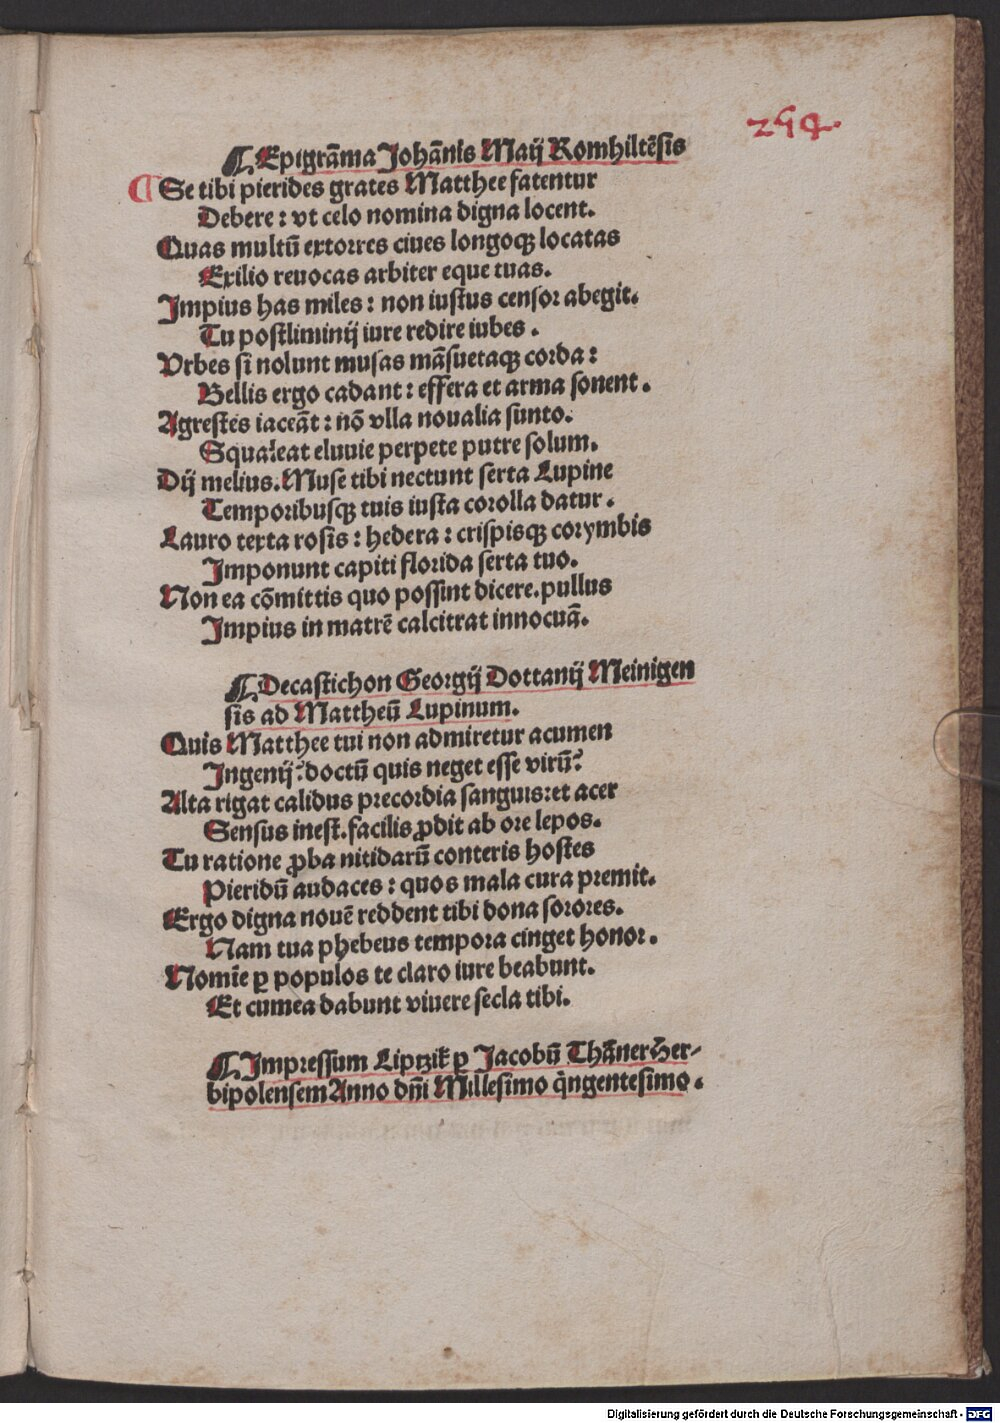 254.
¶ Epigrām̄a Johānis Maij Romhiltēsis
¶ Se tibi pierides grates Matthee fatentur
Debere: vt celo nomina digna locent.
Quas multū extorres ciues longoqꝫ locatas
Exilio reuocas arbiter eque tuas.
Impius has miles: non iustus censor abegit.
Tu postliminij iure redire iubes.
Vrbes si nolunt musas māsuetaqꝫ corda:
Bellis ergo cadant: effera et arma sonent.
Agrestes iaceāt: nō vlla noualia sunto.
Squaleat eluuie perpete putre solum.
Dij melius. Muse tibi nectunt serta Lupine
Temporibusqꝫ tuis iusta corolla datur.
Lauro texta rosis: hedera: crispisqꝫ corymbis
Imponunt capiti florida serta tuo.
Non ea cōmittis quo possint dicere. pullus
Impius in matrē calcitrat innocuā.
¶ Decastichon Georgij Dottanij Meinigen
sis ad Mattheū Lupinum.
Quis Matthee tui non admiretur acumen
Ingenij? doctū quis neget esse virū?
Alta rigat calidus precordia sanguis: et acer
Sensus inest. facilis ꝓdit ab ore lepos.
Tu ratione ꝓba nitidarū conteris hostes
Pieridū audaces: quos mala cura premit.
Ergo digna nouē reddent tibi dona sorores.
Nam tua phebeus tempora cinget honor.
Nomīe ꝑ populos te claro iure beabunt.
Et cumea dabunt viuere secla tibi.
¶ Impressum Liptzik ꝑ Jacobū Thāner Her-
bipolensem Anno dn̄i Millesimo q̄ngentesimo.
Digitalisierung gefördert durch die Deutsche Forschungsgemeinschaft - DFG